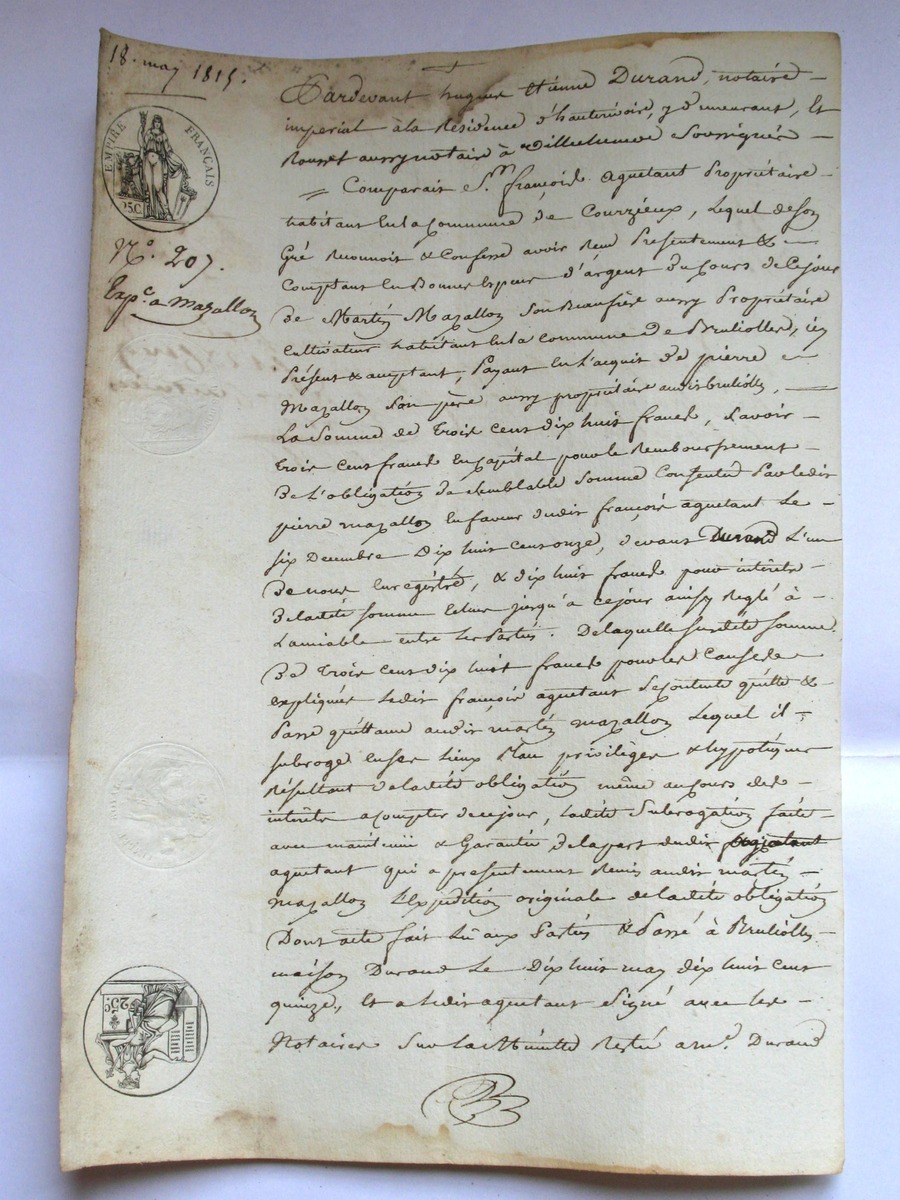 18. may 1815.
EMPIRE FRANÇAIS
25C
N.º 207.
Exp.ᶜ a Mazallon
Pardevant hugues Etiénne Durand, notaire
imperial à la Résidence d'hauterivoire, y demeurant, Et
Rousset aussy notaire à Villecheneve Soussignés
Comparait S.r françois aguetant Propriétaire
habitant En la Commune de Courzieux, Lequel de son
Gré Reconnoit & Confesse avoir Reçu Présentement &
Comptant En Bonnes Espèces d'argent du Cours de Cejour
De Martin Mazallon Son Beaufrère aussy Propriétaire
Cultivateur habitant En la commune de Brulliolles, icy
Présent & acceptant, Payant En L'acquit de pierre
Mazallon Son père aussy propriétaire audit brulliolles,
La Somme de Trois Cens dix huit francs, Savoir
Trois Cens francs En capital pour le Remboursement
De L'obligation de Semblable Somme Consentie Par ledit
pierre mazallon En faveur dudit françois aguetant Le
six Decembre Dix huit Cens onze, devant Durand L'un
De nous Enregistré, & dix huit francs pour intérêts
De ladite somme Echus jusqu'à cejour ainsy Reglé à
L'amiable entre Les Parties. De laquelle susdite somme
De Trois Cens dix huit francs pour les Causes
expliqués Ledit françois aguetant Se contente quitte &
Passe quittance audit martin mazallon Lequel il
subroge En ses Lieux Place privilèges & hypotèques
Résultant de ladite obligation même au cours des
intérêts a compter de ce jour, Ladite Subrogation faite
avec maintenüe & Garantie de la part dudit
aguetant qui a présentement Remis audit martin
mazallon L'Expédition originale de ladite obligation
Dont acte fait Lû aux Parties & Passé à Brulliolles
maison Durand Le Dix huit may dix huit cent
quinze, Et a Ledit aguetant Signé avec les
Notaires Sur La Minutte Restée a m.e Durand
25C